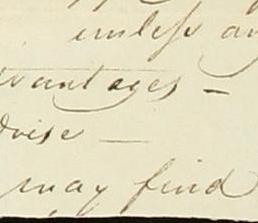 unless an
vantages –
dvise —
may find